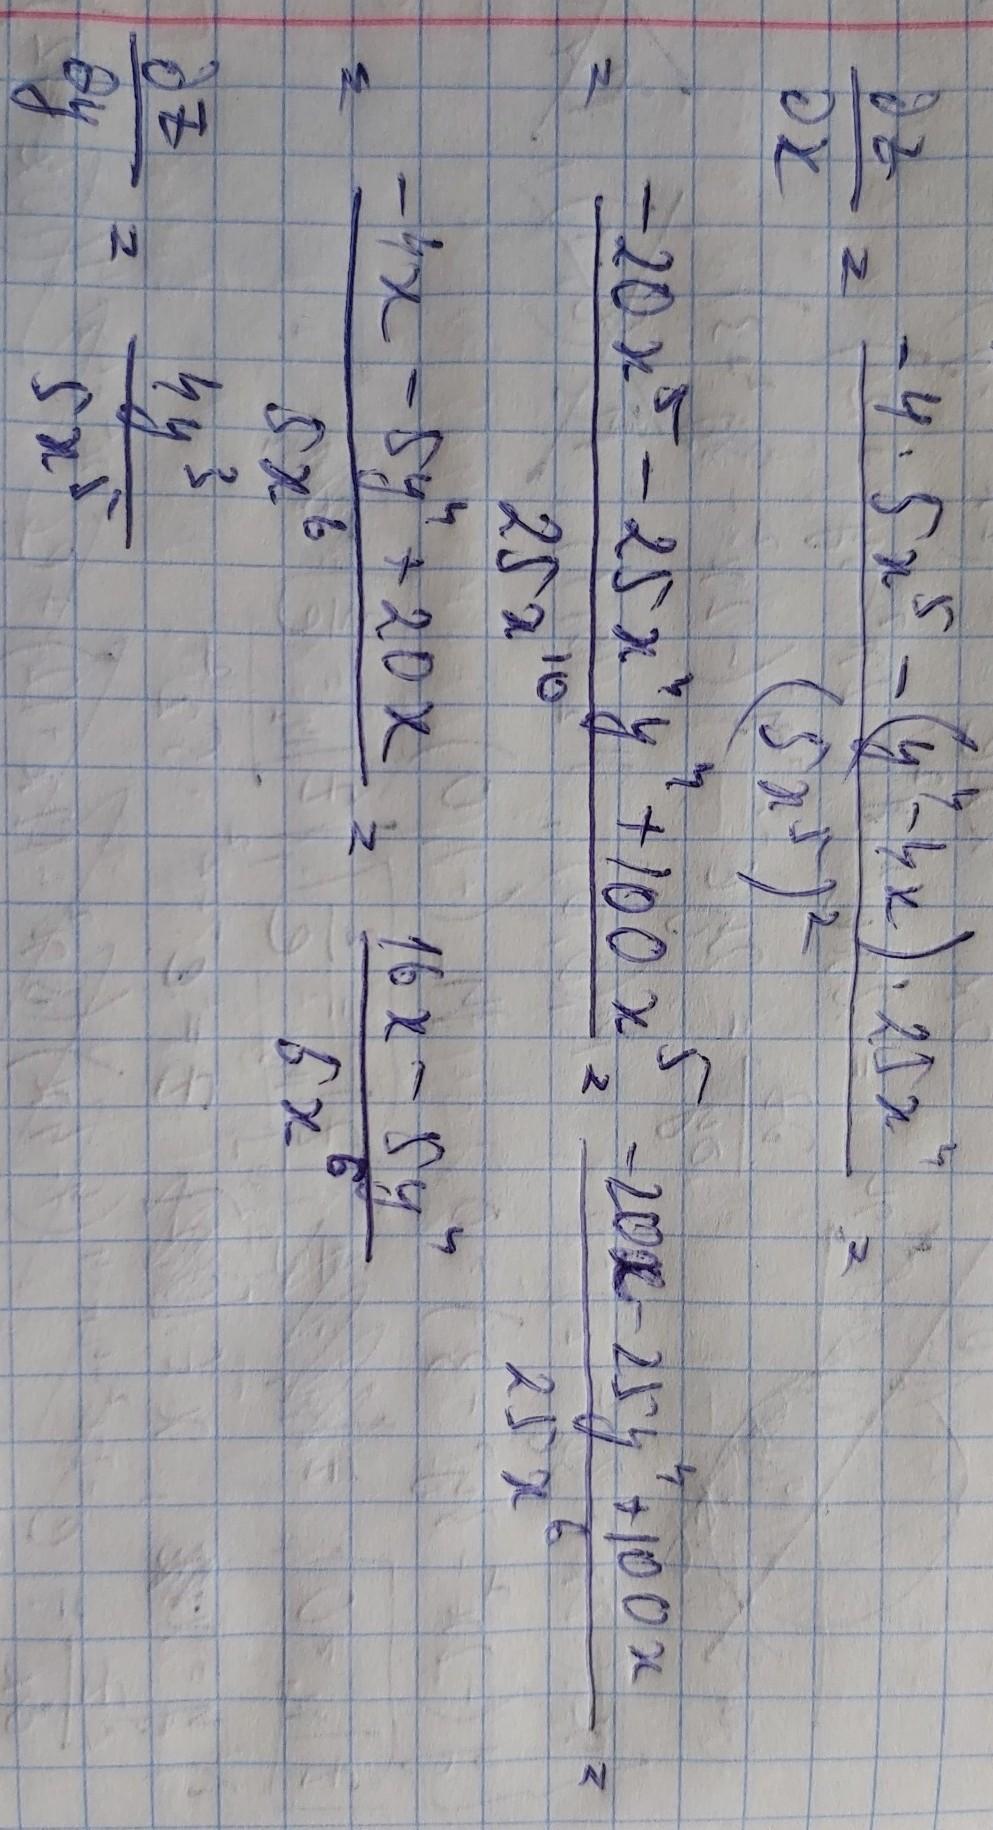 ∂z/∂x = (-4·5x⁵ - (y⁴ - 4x)·25x⁴)/(5x⁵)² =
= (-20x⁵ - 25x⁴y⁴ + 100x⁵)/(25x¹⁰) = (-20x - 25y⁴ + 100x)/(25x⁶) =
= (-4x - 5y⁴ + 20x)/(5x⁶) = (16x - 5y⁴)/(5x⁶)
∂z/∂y = 4y³/(5x⁵)